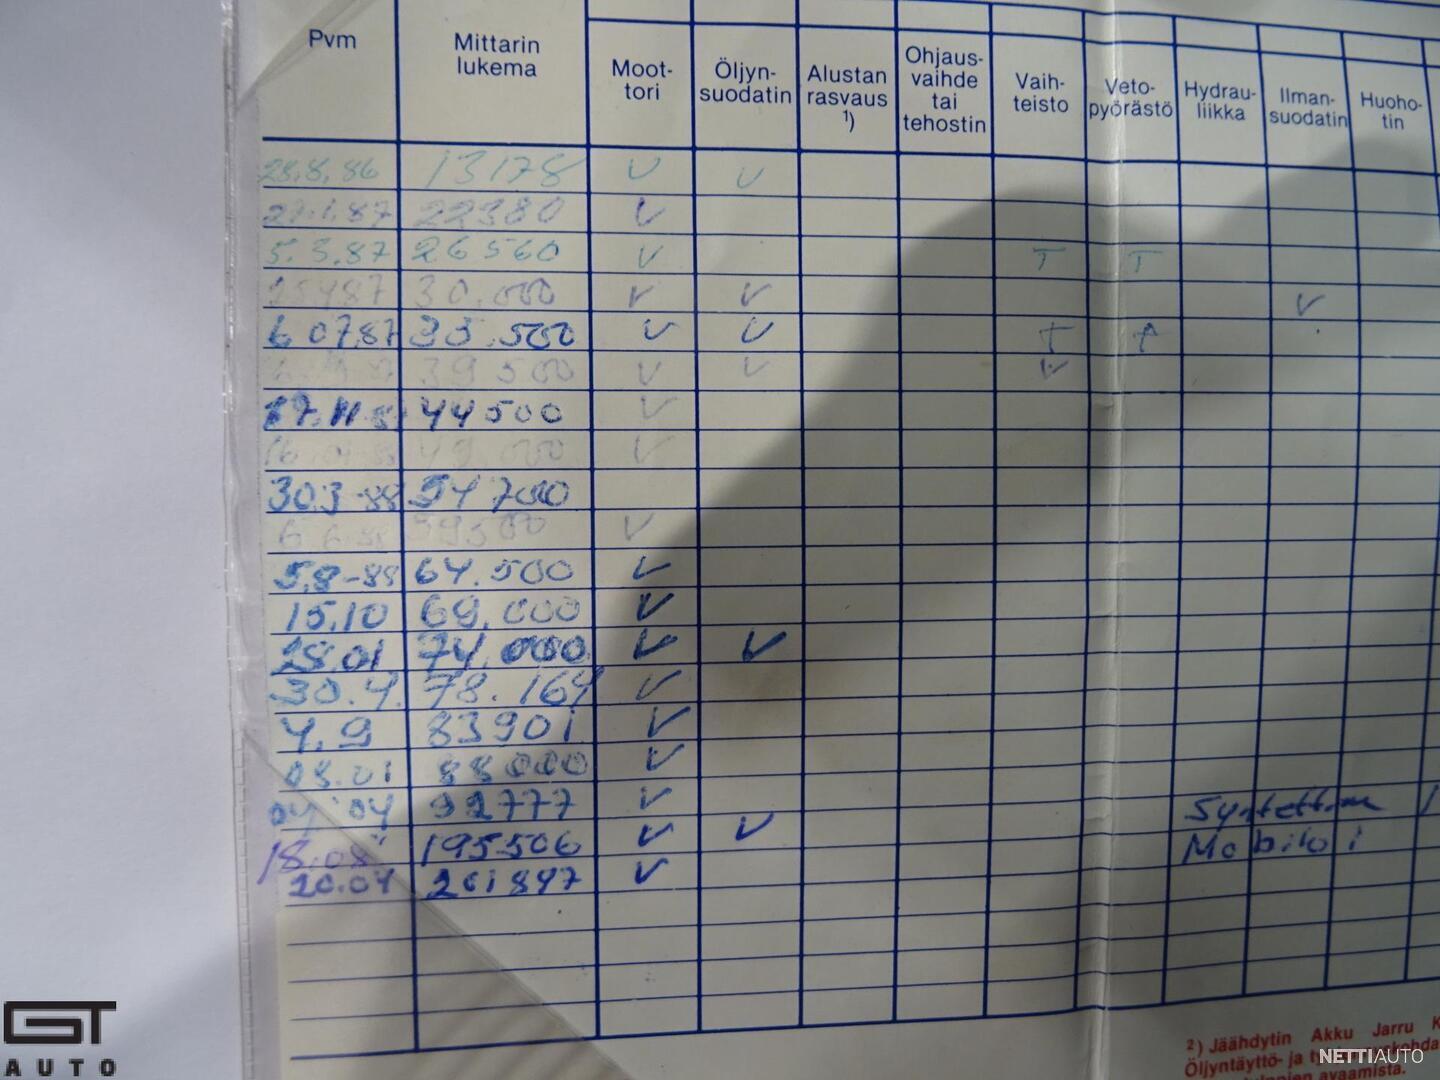 Pvm Mittarin lukema Moot-tori Öljyn-suodatin Alustan rasvaus ¹) Ohjaus-vaihde tai tehostin Vaih-teisto Veto-pyörästö Hydrau-liikka Ilman-suodatin Huoho-tin
28.8.86 13178 V V
27.1.87 22380 V
5.3.87 26560 V T T
30.000 V V V
6 07.87 33.500 V V T T
39500 V V V
17.11.8 44500 V
49.000 V
30.3-88 54700
6 6.88 59500 V
5.8-88 64.500 V
15.10 69.000 V
28.01 74.000 V V
30.4. 78.164 V
4.9 83901 V
08.01 88000 V
04.04 92777 V
18.08 195506 V V
20.04 201897 V
Mobiloi
²) Jäähdytin Akku Jarru K
Öljyntäyttö- ja
avaamista.
GT
AUTO
NETTIAUTO